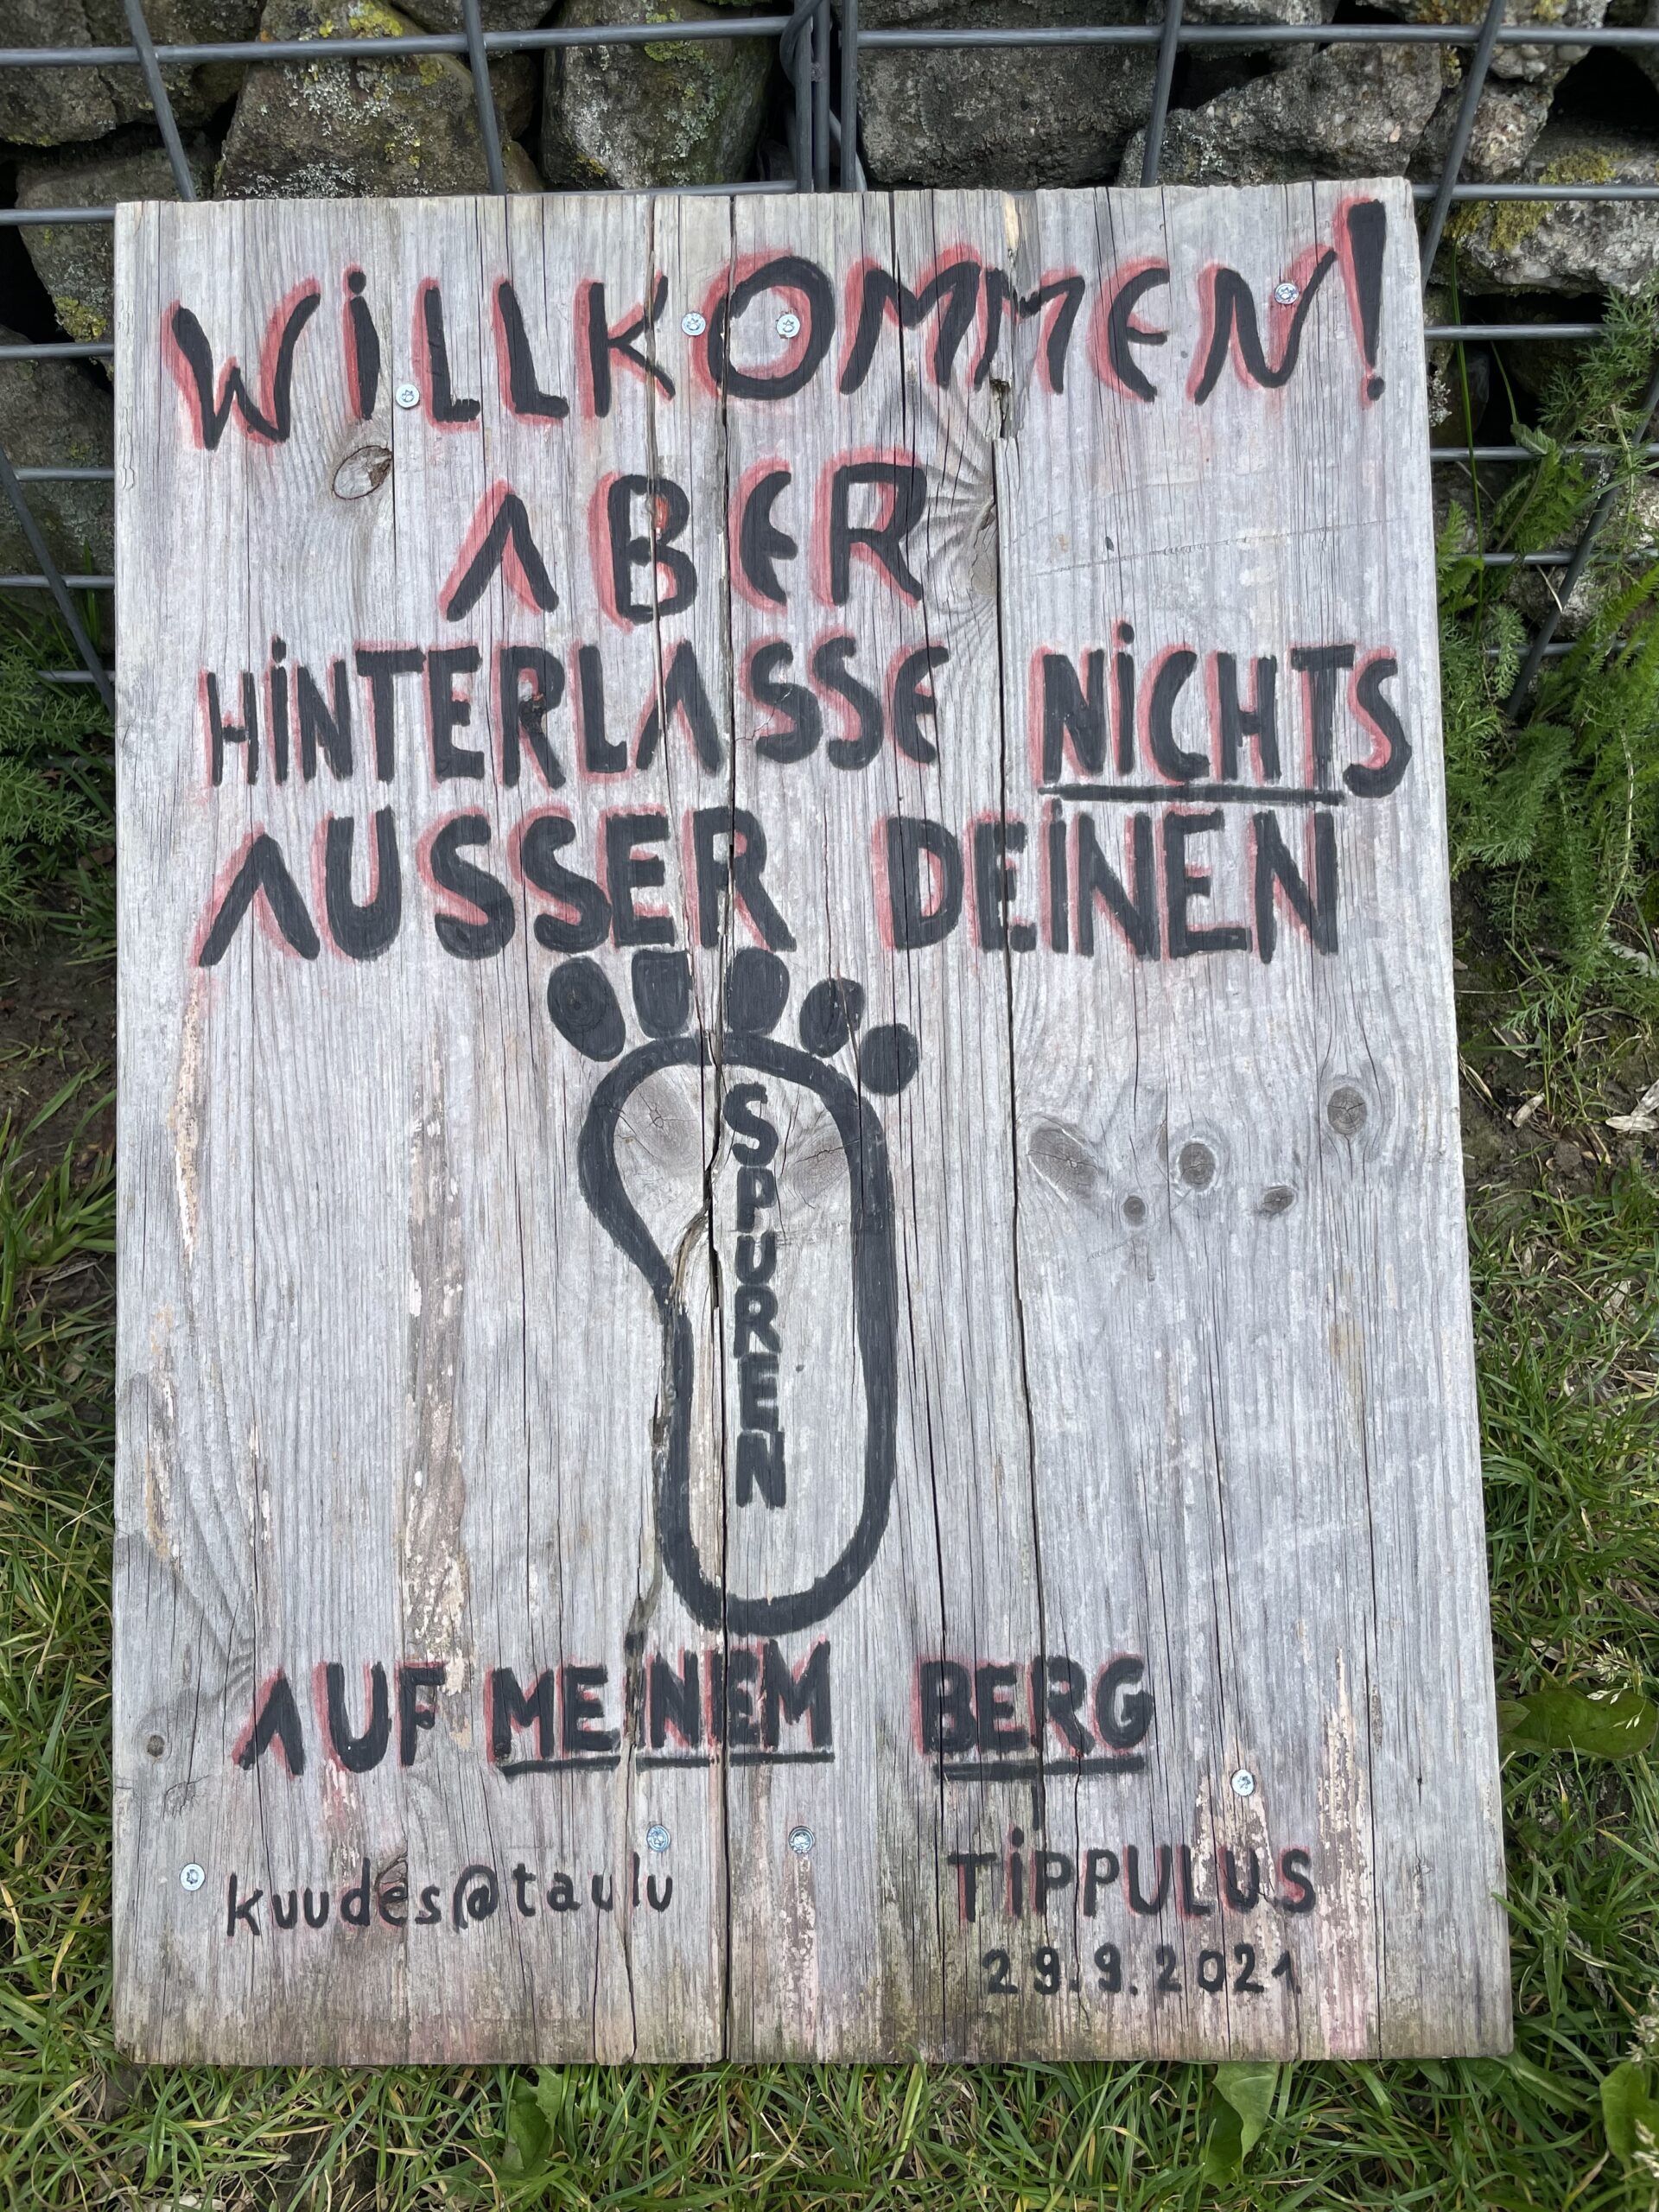 WiLLKOMMEN!
ABER
HiNTERLASSE NiCHTS
AUSSER DEiNEN
SPUREN
AUF MEINEM BERG
kuudes@taulu
TiPPULUS
29.9.2021